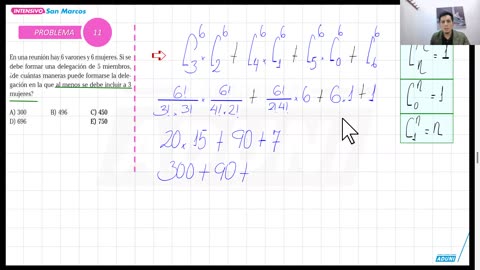 INTENSIVO San Marcos
PROBLEMA 11
En una reunión hay 6 varones y 6 mujeres. Si se
debe formar una delegación de 5 miembros,
¿de cuántas maneras puede formarse la dele-
gación en la que al menos se debe incluir a 3
mujeres?
A) 300 B) 496 C) 450
D) 696 E) 750
C₃⁶ × C₂⁶ + C₄⁶ × C₁⁶ + C₅⁶ × C₀⁶ + C₆⁶
6!/3!·3! × 6!/4!·2! + 6!/2!4! × 6 + 6·1 + 1
20 × 15 + 90 + 7
300 + 90 +
Cₙⁿ = 1
C₀ⁿ = 1
C₁ⁿ = n
ADUNI